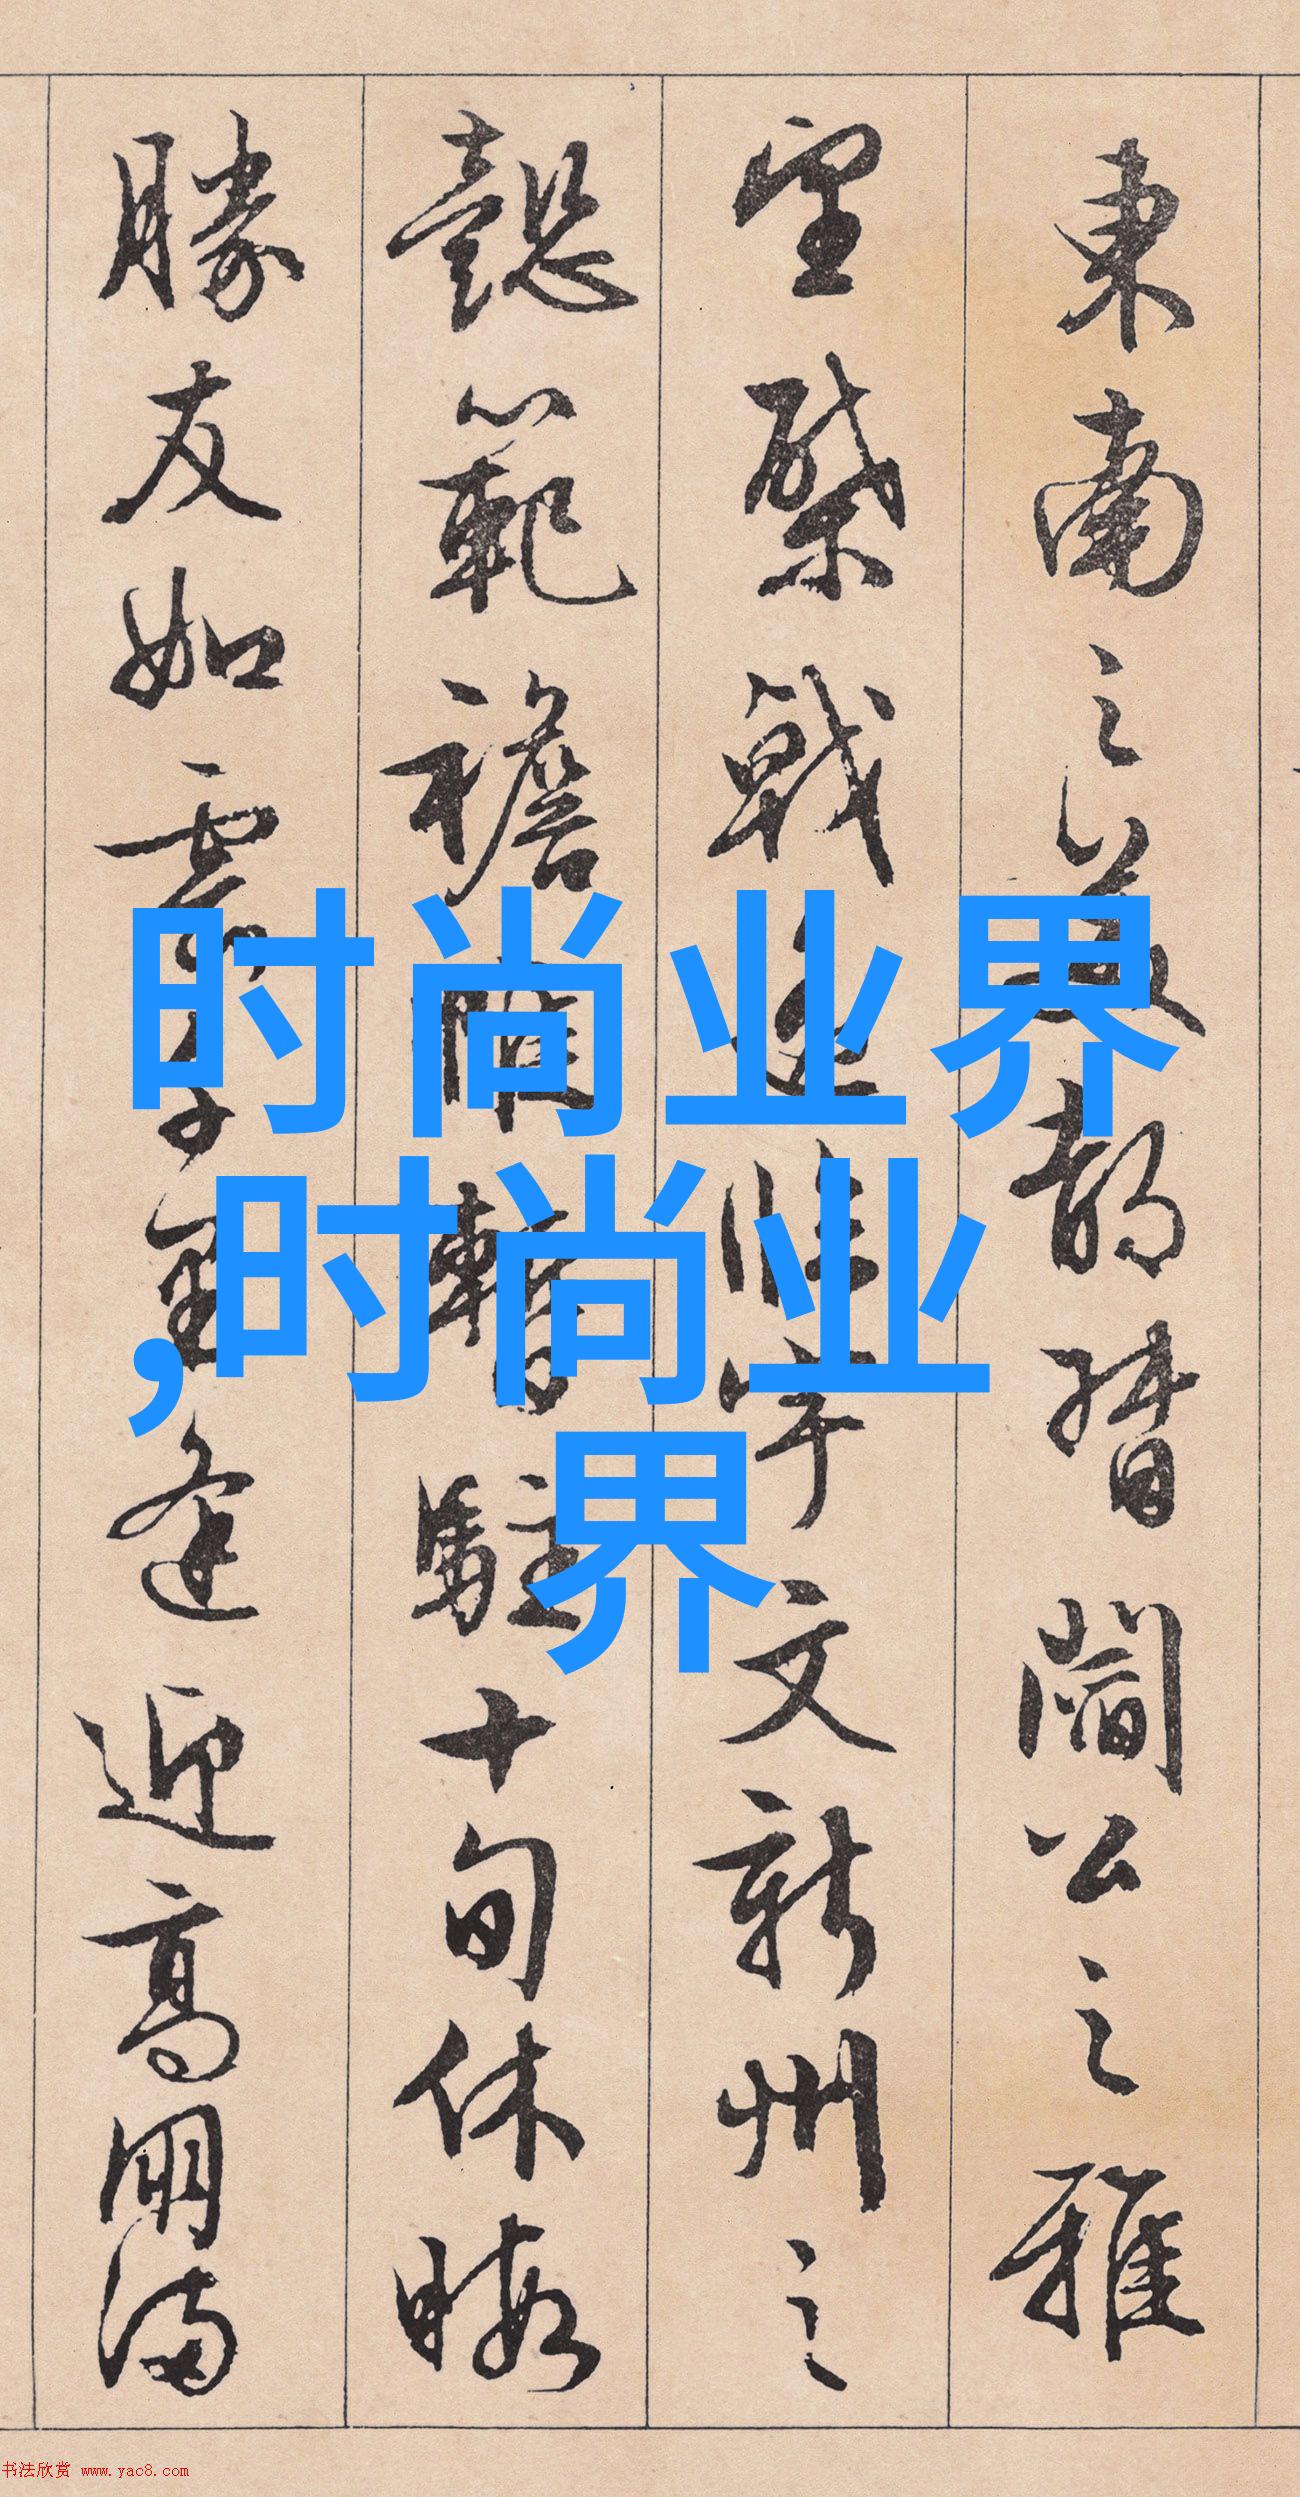 東南之美都督閻公之雅
望棨戟臨宇文新州之
懿範襜帷暫駐十旬休暇
勝友如雲千里逢迎高朋滿
时尚业界
,时尚业
界
书法欣赏 www.yac8.com